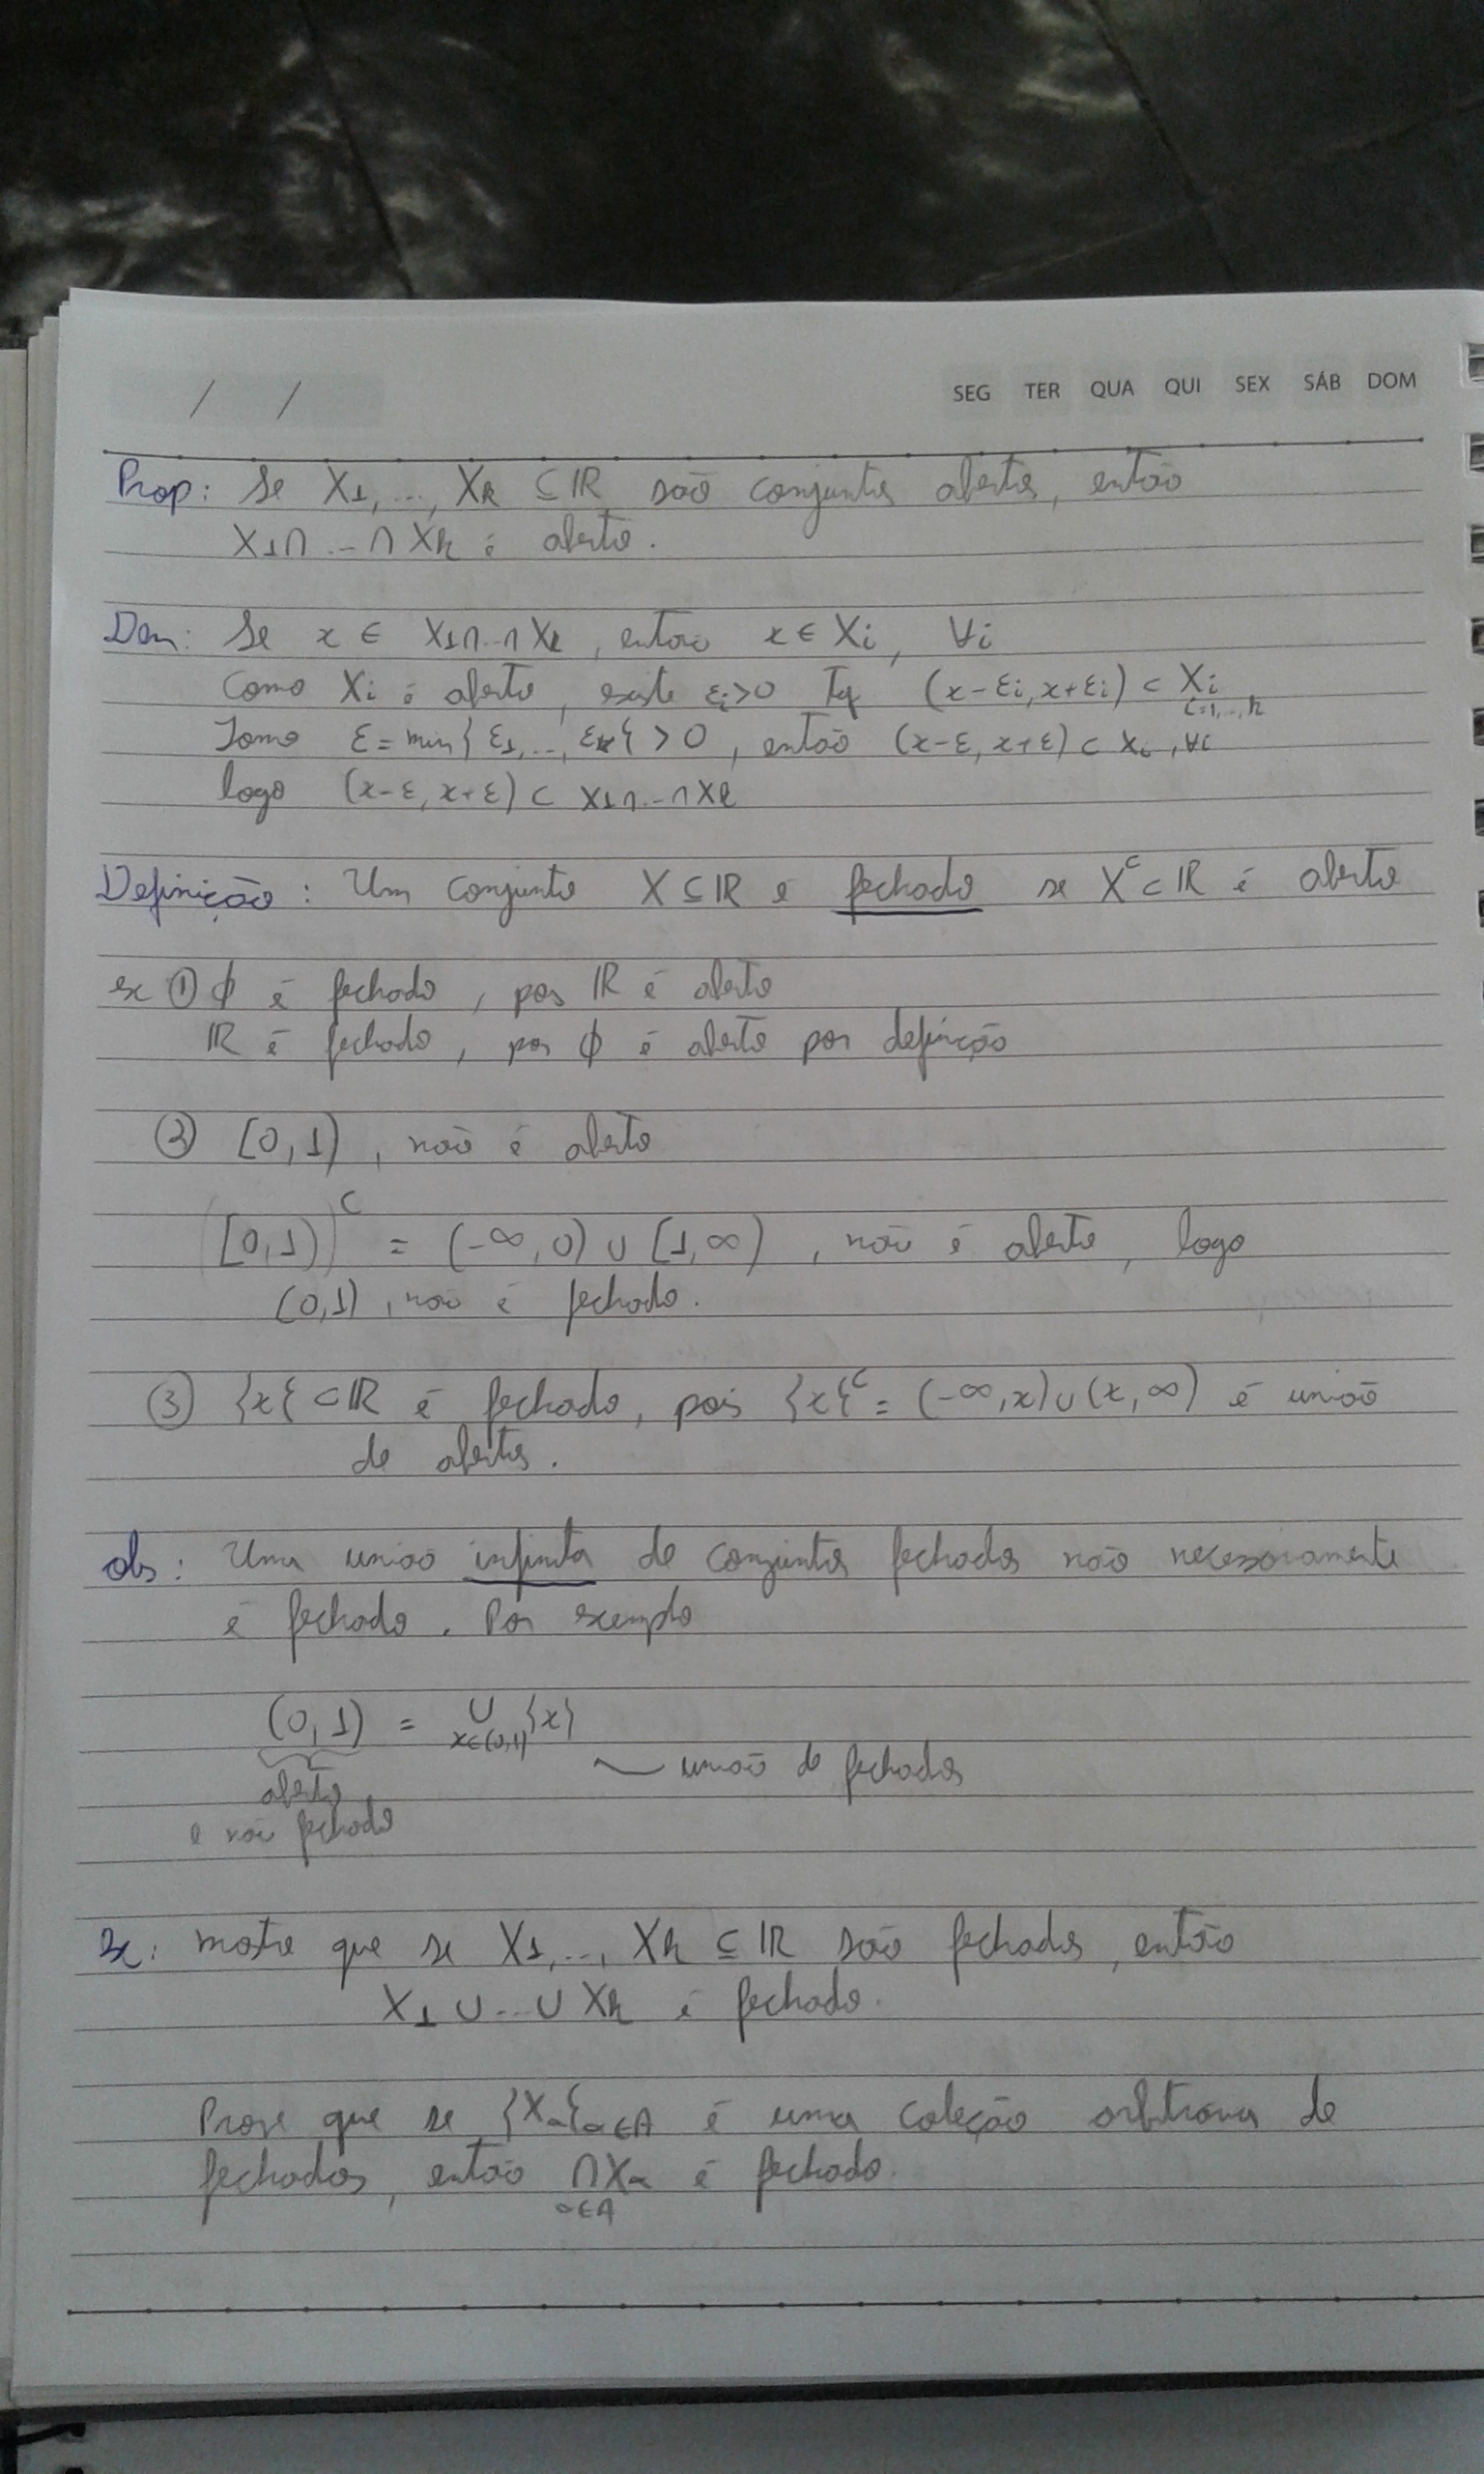 / /
SEG TER QUA QUI SEX SÁB DOM
Prop: Se X1, ..., Xk ⊆ ℝ são conjuntos abertos, então
X1∩ ... ∩ Xk é aberto.
Dem: Se x ∈ X1∩...∩Xk, então x ∈ Xi, ∀i
Como Xi é aberto, existe εi>0 Tq (x-εi, x+εi) ⊂ Xi
i=1,...,k
Tomo ε = min{ε1, ..., εk} > 0, então (x-ε, x+ε) ⊂ Xi, ∀i
logo (x-ε, x+ε) ⊂ X1∩...∩Xk
Definição: Um conjunto X ⊆ ℝ é fechado se X^c ⊂ ℝ é aberto
ex ① ϕ é fechado, pois ℝ é aberto
ℝ é fechado, pois ϕ é aberto por definição
② [0,1), não é aberto
([0,1))^c = (-∞,0) ∪ [1,∞), não é aberto, logo
[0,1), não é fechado.
③ {x} ⊂ ℝ é fechado, pois {x}^c = (-∞,x)∪(x,∞) é união
de abertos.
obs: Uma união infinita de conjuntos fechados não necessariamente
é fechado. Por exemplo
(0,1) = ∪ {x}
x∈(0,1)
união de fechados
aberto
e não fechado
Ex: mostre que se X1, ..., Xk ⊆ ℝ são fechados, então
X1 ∪ ... ∪ Xk é fechado.
Prove que se {Xα}α∈A é uma coleção arbitrária de
fechados, então ∩Xα é fechado.
α∈A